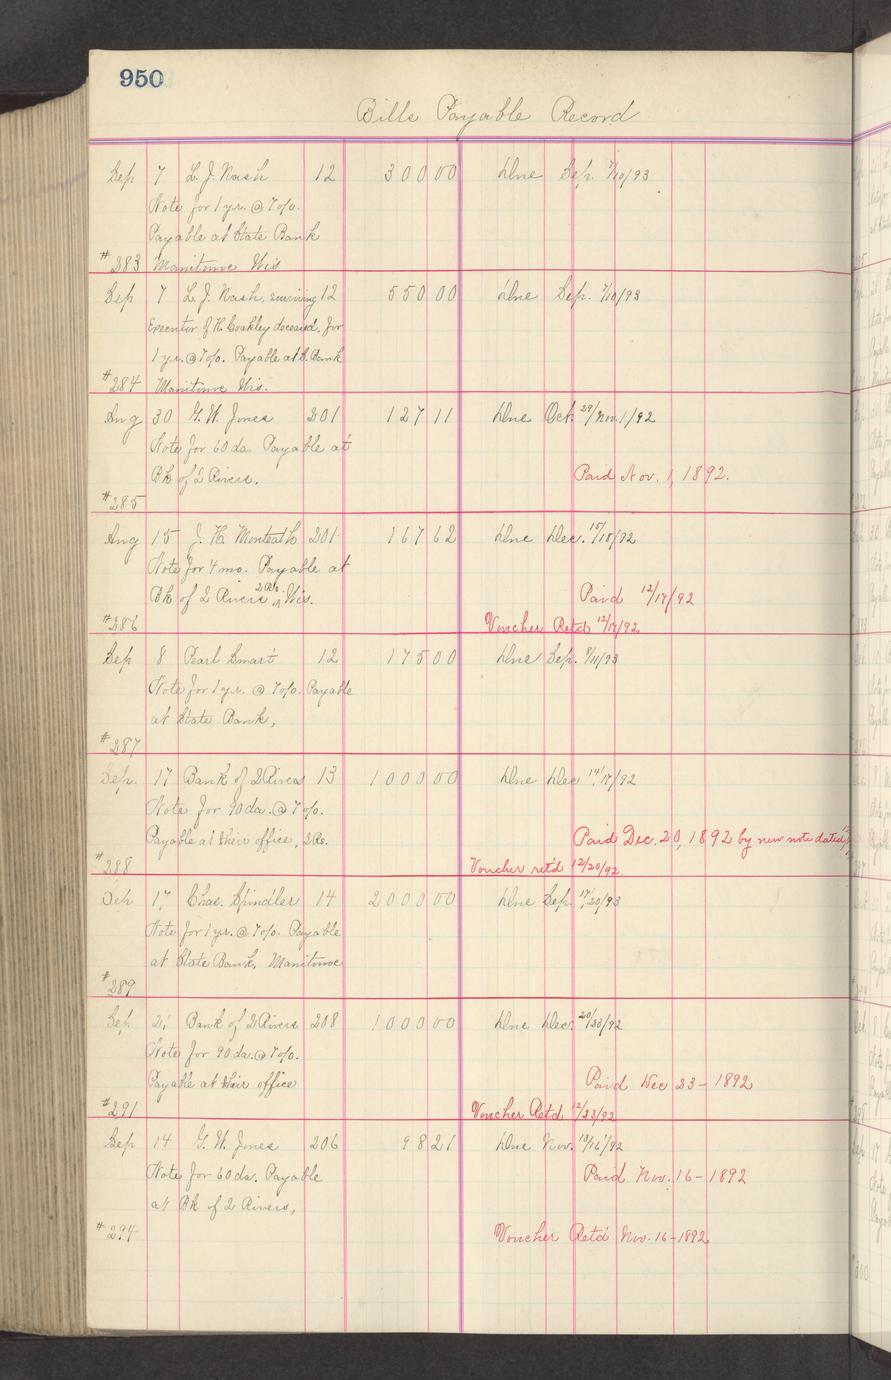 950
Bills Payable Record
Sep 7 L. J. Nash 12 300000 Due Sep. 7/10/93
Note for 1 yr. @ 7 o/o.
Payable at State Bank
#283 Manitowoc Wis
Sep 7 L. J. Nash, surviving 12 55000 Due Sep. 7/10/93
Executor of H. Coakley deceased, for
1 yr. @ 7 o/o. Payable at S. Bank
#284 Manitowoc Wis.
Aug 30 G. W. Jones 201 12711 Due Oct. 29/Nov. 1/92
Note for 60 da. Payable at
Bk of 2 Rivers. Paid Nov. 1, 1892.
#285
Aug 15 J. H. Monteath 201 16762 Due Dec. 15/18/92
Note for 4 mo. Payable at
Bk of 2 Rivers, Wis. Paid 12/17/92
#286 Voucher Retd 12/17/92
Sep 8 Pearl Smart 12 17500 Due Sep. 8/11/93
Note for 1 yr. @ 7 o/o. Payable
at State Bank,
#287
Sep. 17 Bank of 2 Rivers 13 100000 Due Dec 14/17/92
Note for 90 da. @ 7 o/o.
Payable at their office, 2 Rs. Paid Dec. 20, 1892 by new note dated
#288 Voucher ret'd 12/20/92
Sep 17 Chas. Spindler 14 200000 Due Sep. 17/20/93
Note for 1 yr. @ 7 o/o. Payable
at State Bank, Manitowoc
#289
Sep 21 Bank of 2 Rivers 208 100000 Due Dec. 20/23/92
Note for 90 da. @ 7 o/o.
Payable at their office Paid Dec 23 - 1892
#291 Voucher Retd 12/23/92
Sep 14 G. W. Jones 206 9821 Due Nov. 13/16/92
Note for 60 da. Payable Paid Nov. 16 - 1892
at Bk of 2 Rivers,
#294 Voucher Ret'd Nov. 16 - 1892